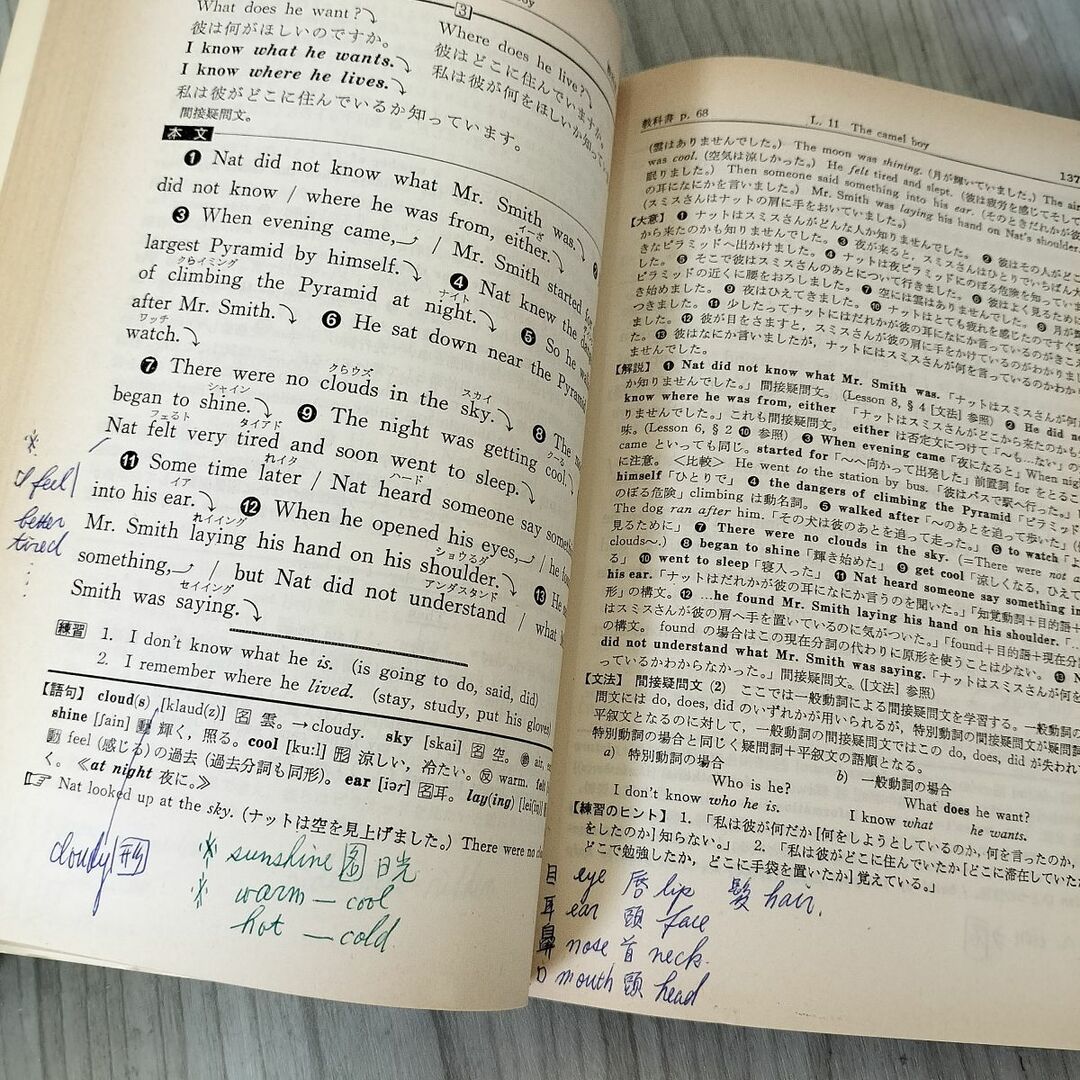 3
What does he want?
彼は何がほしいのですか。
I know what he wants.
I know where he lives.
私は彼がどこに住んでいるか知っています。
間接疑問文。
Where does he live?
彼はどこに住んでいますか。
私は彼が何をほしいか知って
本文
❶ Nat did not know what Mr. Smith was.
did not know / where he was from, either.
イーざ
❸ When evening came, / Mr. Smith started for
largest Pyramid by himself. ❹ Nat knew the
くらイミング
of climbing the Pyramid at night. ❺ So he
ナイト
after Mr. Smith. ❻ He sat down near the Pyramid
ワッチ
watch.
くらウズ スカイ
❼ There were no clouds in the sky. ❽ The
シャイン
began to shine. ❾ The night was getting cool.
クーる
フェるト タイアド
Nat felt very tired and soon went to sleep.
れイタ ハード
⓫ Some time later / Nat heard someone say
イア
into his ear. ⓬ When he opened his eyes, / he
れイイング
Mr. Smith laying his hand on his shoulder. ⓭ He
ショウるダ
something, / but Nat did not understand / what
セイイング アンダスタンド
Smith was saying.
練習 1. I don't know what he is. (is going to do, said, did)
2. I remember where he lived. (stay, study, put his gloves)
【語句】 cloud(s) [klaud(z)] 名 雲。→cloudy. sky [skai] 名 空。
shine [ʃain] 動 輝く, 照る。 cool [ku:l] 形 涼しい, 冷たい。反 warm. felt
動 feel (感じる)の過去 (過去分詞も同形)。 ear [iər] 名 耳。 lay(ing)
く。 《at night 夜に。》
☞ Nat looked up at the sky. (ナットは空を見上げました。) There were no
※
I feel
better
tired
cloudy 形
※ sunshine 名 日光
※ warm — cool
hot — cold
教科書 p. 68 L. 11 The camel boy 137
(雲はありませんでした。) The moon was shining. (月が輝いていました。) The air
was cool. (空気は涼しかった。) He felt tired and slept. (彼は疲労を感じてそして
眠りました。) Then someone said something into his ear. (そのときだれかが彼
の耳になにかを言いました。) Mr. Smith was laying his hand on Nat's shoulder.
(スミスさんはナットの肩に手をおいていました。)
【大意】 ❶ ナットはスミスさんがどんな人か知りませんでした。 ❷ 彼はその人がどこ
から来たのかも知りませんでした。 ❸ 夜が来ると, スミスさんはひとりでいちばん大
きなピラミッドへ出かけました。 ❹ ナットは夜ピラミッドにのぼる危険を知っていま
した。 ❺ そこで彼はスミスさんのあとについて行きました。 ❻ 彼はよく見るために
ピラミッドの近くに腰をおろしました。 ❼ 空には雲はありませんでした。 ❽ 月が
き始めました。 ❾ 夜はひえてきました。 ❿ ナットはとても疲れを感じたのですぐ
つきました。 ⓫ 少したってナットにはだれかが彼の耳になにか言っているのがきこえ
ました。 ⓬ 彼が目をさますと, スミスさんが彼の肩に手をかけているのがわかりま
た。 ⓭ 彼はなにか言いましたが, ナットにはスミスさんが何を言っているのかわか
ませんでした。
【解説】 ❶ Nat did not know what Mr. Smith was. 「ナットはスミスさんが何
か知りませんでした。」間接疑問文。(Lesson 8, § 4 [文法] 参照) ❷ He did not
know where he was from, either 「ナットはスミスさんがどこから来たのかも
りませんでした。」これも間接疑問文。 either は否定文につけて「〜も…ない」の
味。(Lesson 6, § 2 ❿ 参照) ❸ When evening came 「夜になると」When night
came といっても同じ。 started for 「〜へ向かって出発した」前置詞 for をとること
に注意。 〈比較〉 He went to the station by bus. 「彼はバスで駅へ行った。」
himself 「ひとりで」 ❹ the dangers of climbing the Pyramid 「ピラミッド
のぼる危険」 climbing は動名詞。 ❺ walked after 「〜のあとを追って歩いた」
The dog ran after him. 「その犬は彼のあとを追って走った。」 ❻ to watch 「
見るために」 ❼ There were no clouds in the sky. (=There were not
clouds〜.) ❽ began to shine 「輝き始めた」 ❾ get cool 「涼しくなる, ひえて
る」 ❿ went to sleep 「寝入った」 ⓫ Nat heard someone say something into
his ear. 「ナットはだれかが彼の耳になにか言うのを聞いた。」「知覚動詞+目的語+
形」の構文。 ⓬ …he found Mr. Smith laying his hand on his shoulder. 「
はスミスさんが彼の肩へ手を置いているのに気がついた。」「found+目的語+現在分
の構文。 found の場合はこの現在分詞の代わりに原形を使うことは少ない。 ⓭
did not understand what Mr. Smith was saying. 「ナットはスミスさんが何を
っているかわからなかった。」間接疑問文。([文法] 参照)
【文法】 間接疑問文 (2) ここでは一般動詞による間接疑問文を学習する。一般動詞の
問文には do, does, did のいずれかが用いられるが, 特別動詞の間接疑問文が疑問詞
平叙文となるのに対して, 一般動詞の間接疑問文ではこの do, does, did が失われて
特別動詞の場合と同じく疑問詞+平叙文の語順となる。
a) 特別動詞の場合 b) 一般動詞の場合
Who is he? What does he want?
I don't know who he is. I know what he wants.
【練習のヒント】 1. 「私は彼が何だか [何をしようとしているのか, 何を言ったのか,
をしたのか] 知らない。」 2. 「私は彼がどこに住んでいたか [どこに滞在していた
どこで勉強したか, どこに手袋を置いたか] 覚えている。」
目 eye 唇 lip 髪 hair.
耳 ear 頭 face
鼻 nose 首 neck.
口 mouth 頭 head